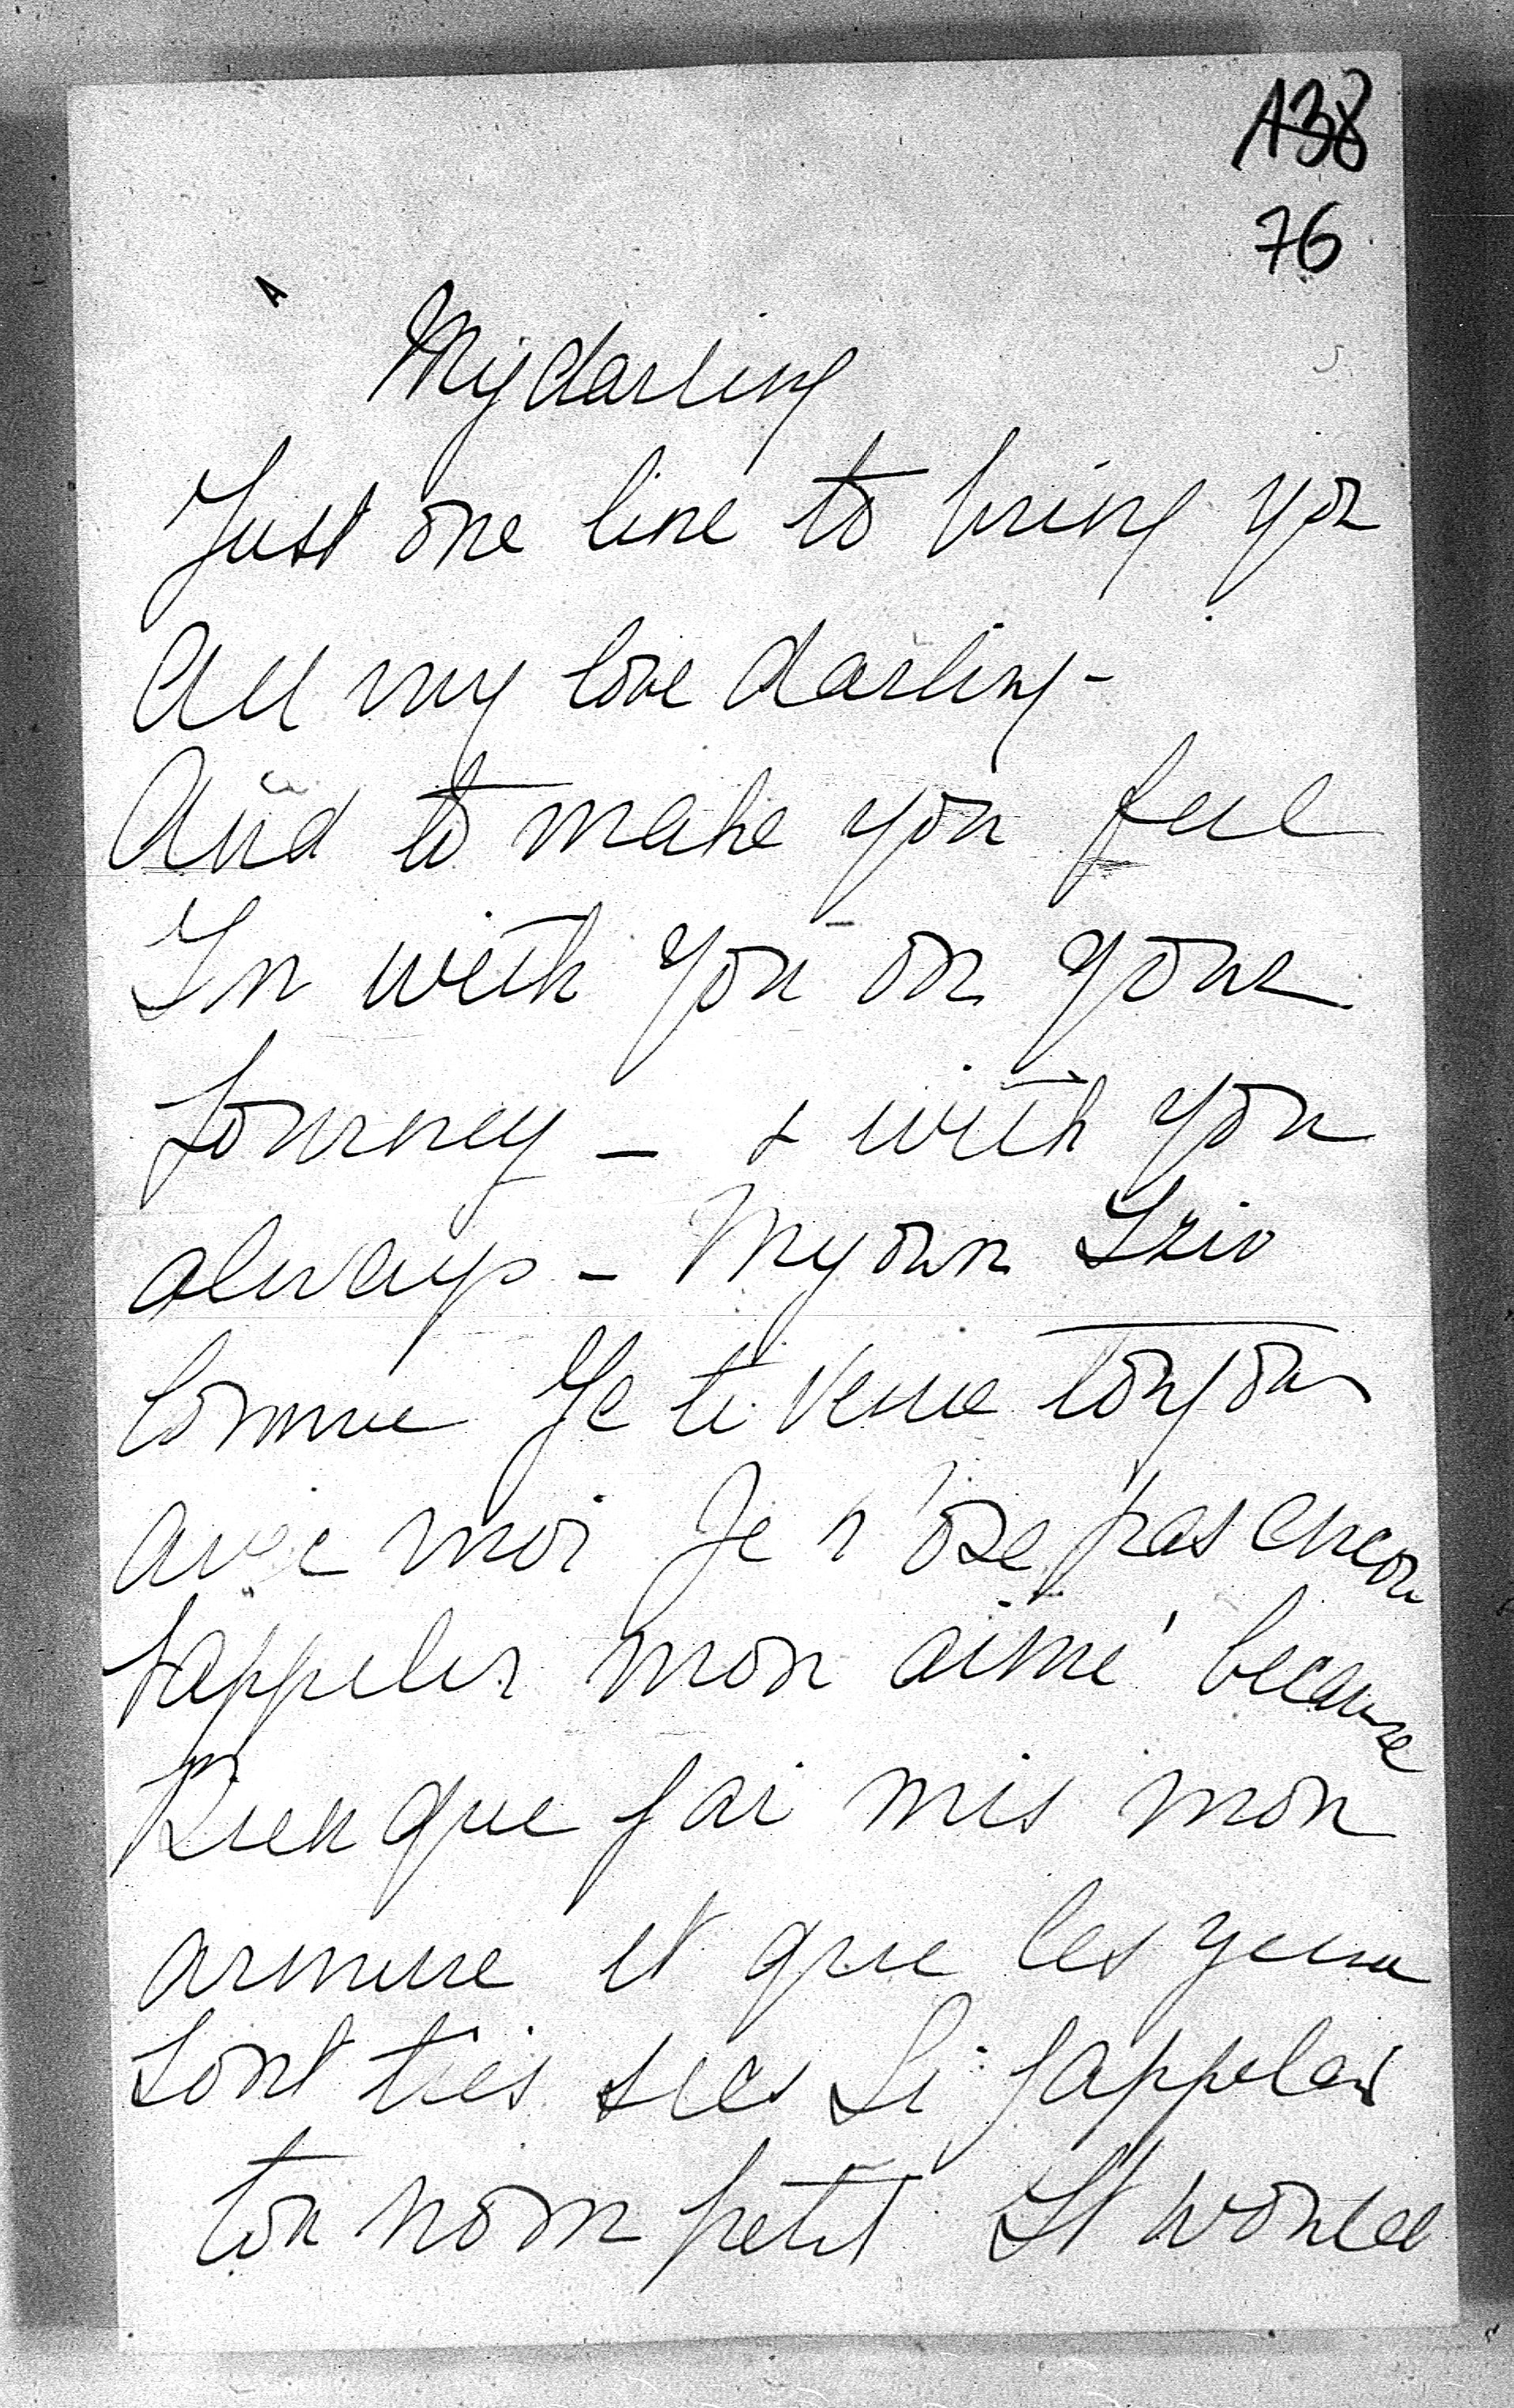 A38
76
My darling
Just one line to bring you
All my love darling -
And to make you feel
Im with you on your
Journey - & with you
always - My own
Comme Je te veux toujours
avec moi Je n'ose pas encore
t'appeler mon aimé because
Rien que j'ai mis mon
armure et que les yeux
sont très secs Si j'appelais
ton nom petit It would